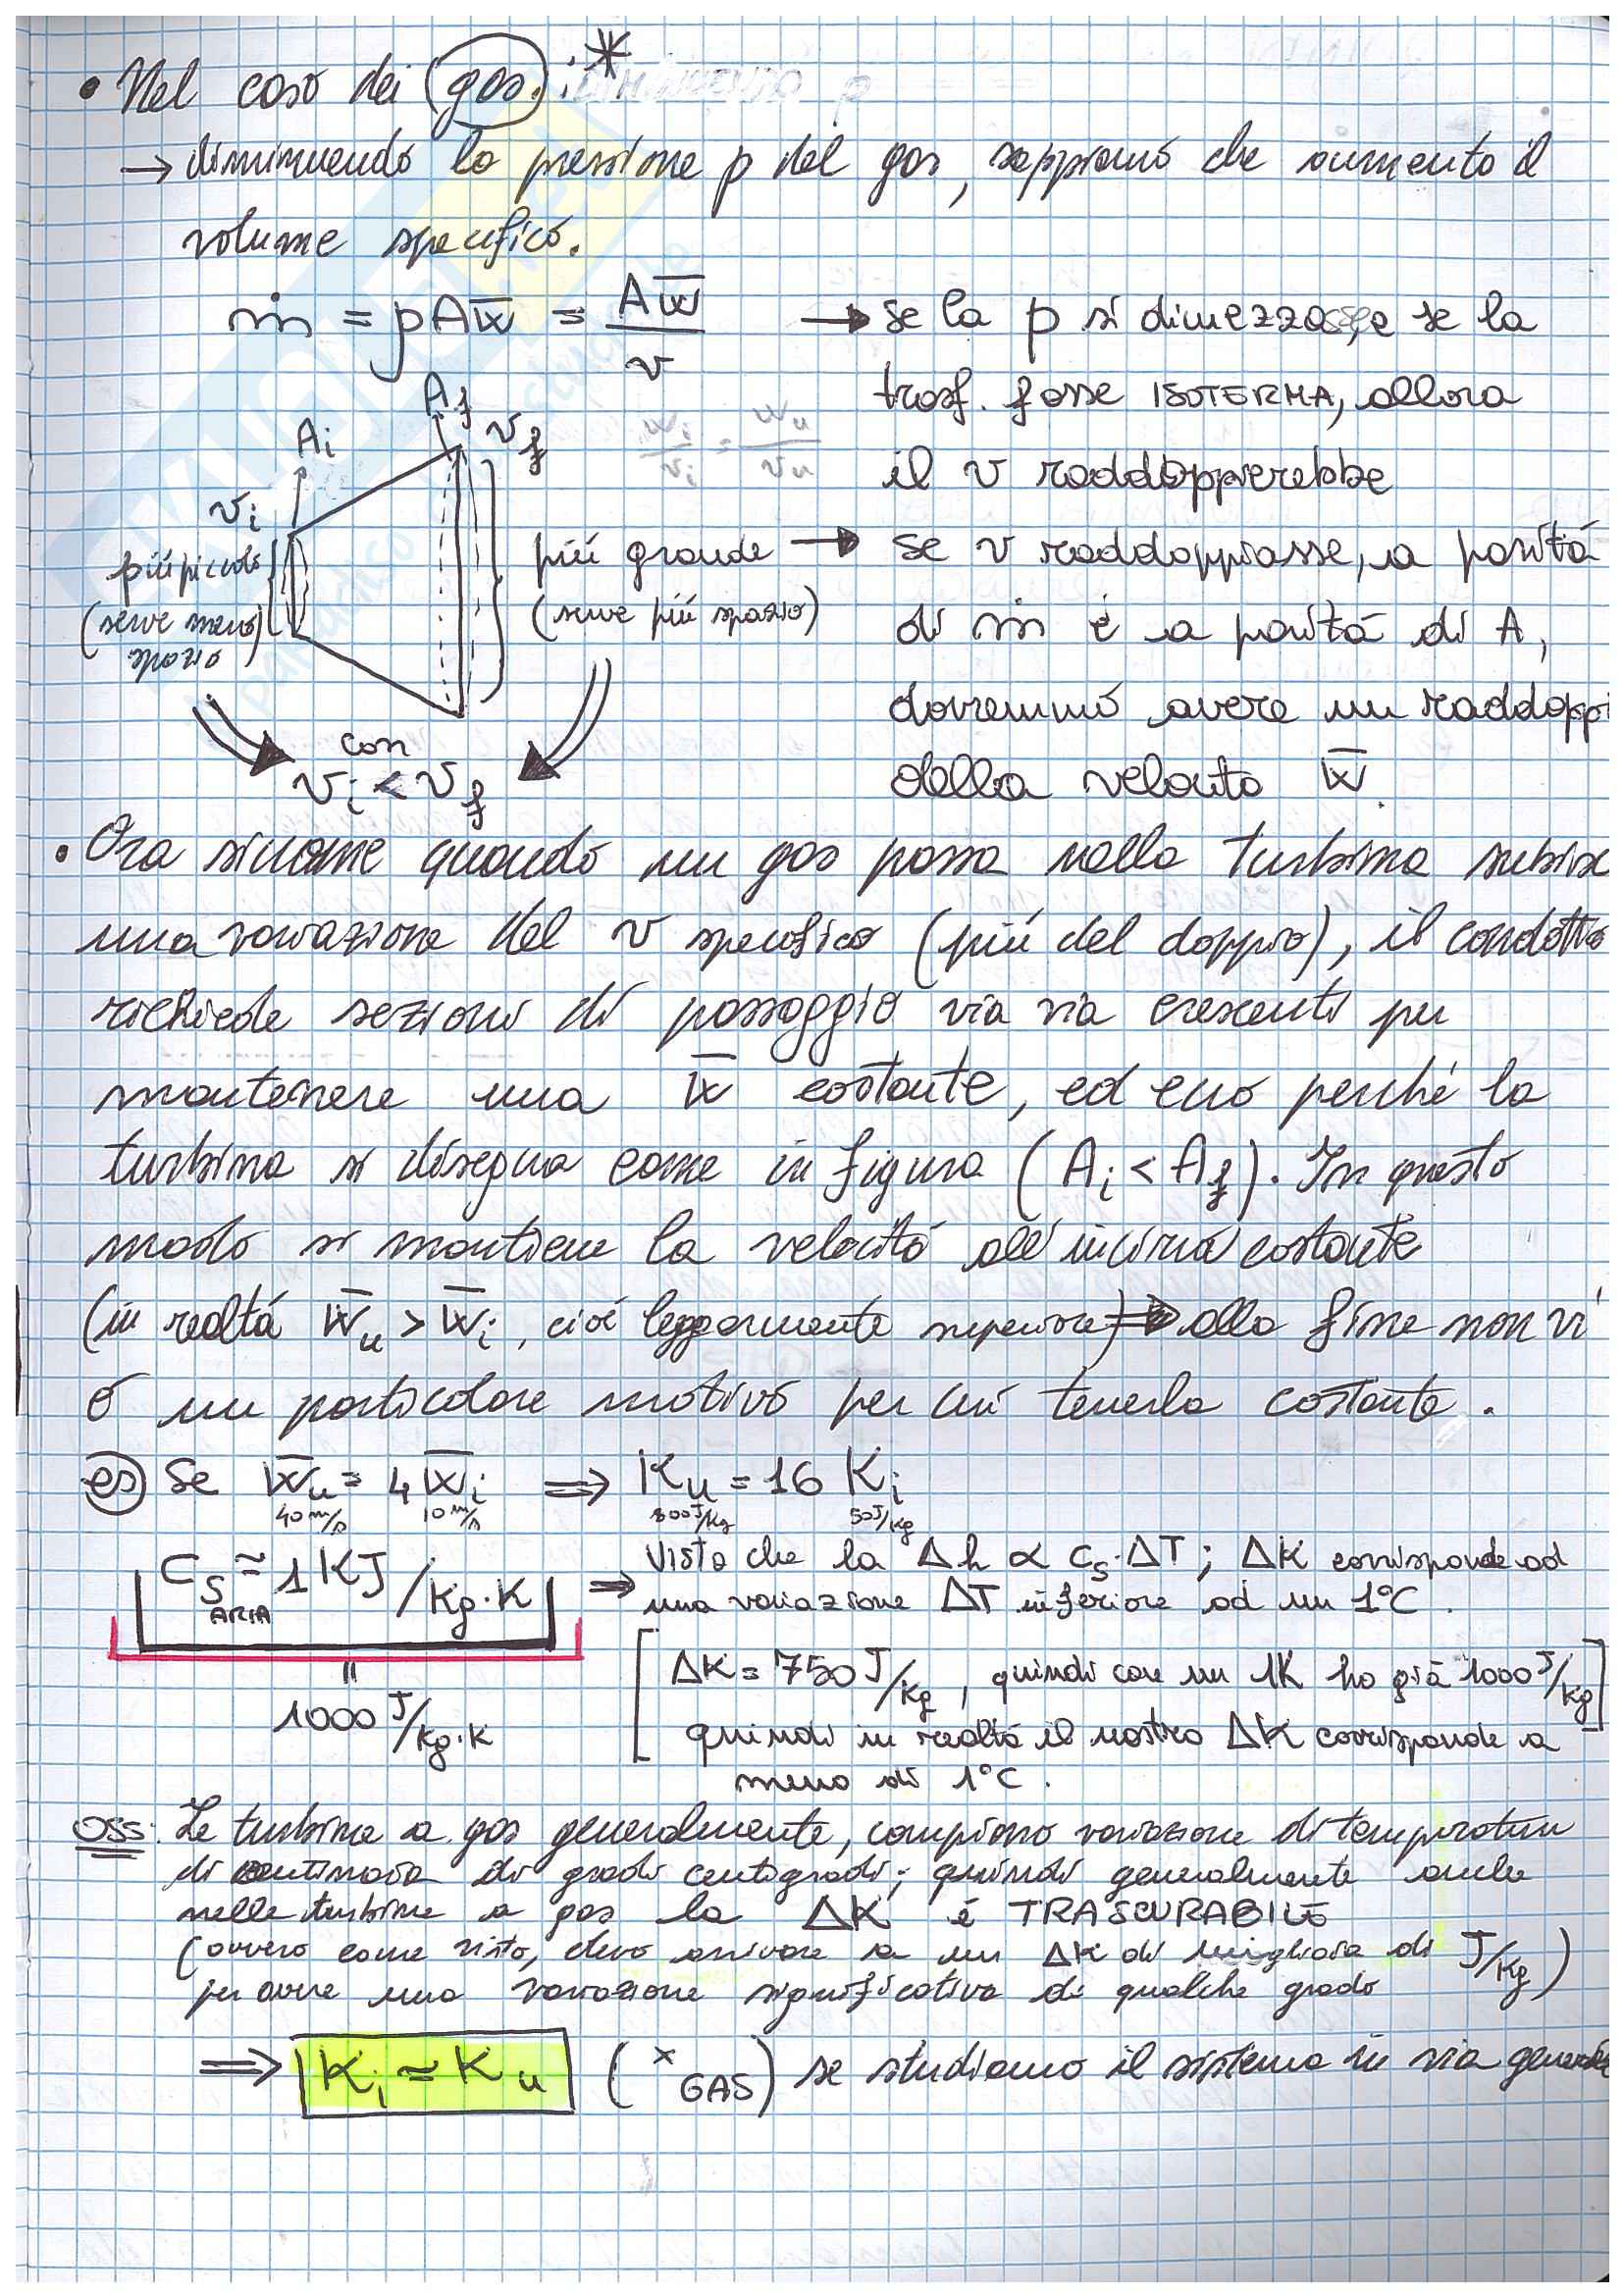 • Nel caso dei gas : *
→ diminuendo la pressione p del gas, sappiamo che aumenta il
volume specifico.
ṁ = ρAw̅ = Aw̅/v
→ se la p si dimezzasse e se la
trasf. fosse ISOTERMA, allora
il v raddoppierebbe
→ se v raddoppiasse, a parità
di ṁ e a parità di A,
dovremmo avere un raddoppi
della velocità w̅.
Ai
Af
vi
vf
più piccolo
(serve meno
spazio)
più grande
(serve più spazio)
con
vi < vf
wi/vi = wu/vu
• Ora siccome quando un gas passa nella turbina subisce
una variazione del v specifico (più del doppio), il condotto
richiede sezioni di passaggio via via crescenti per
mantenere una w̅ costante, ed ecco perché la
turbina si disegna come in figura (Ai < Af). In questo
modo si mantiene la velocità all'incirca costante
(in realtà w̅u > w̅i, cioè leggermente superiore) ⇒ alla fine non vi
è un particolare motivo per cui tenerla costante.
es) Se w̅u = 4 w̅i ⇒ Ku = 16 Ki
40 m/s 10 m/s 800 J/kg 50 J/kg
Cs ARIA ≃ 1 KJ/kg·K
⇒ Visto che la Δh ∝ cs·ΔT ; ΔK corrisponde ad
una variazione ΔT inferiore ad un 1°C.
[ΔK = 750 J/kg, quindi con un 1K ho già 1000 J/kg]
quindi in realtà il nostro ΔK corrisponde a
meno di 1°C.
=
1000 J/kg·K
OSS: Le turbine a gas generalmente, compiono variazione di temperature
di centinaia di gradi centigradi; quindi generalmente anche
nelle turbine a gas la ΔK è TRASCURABILE
(ovvero come visto, devo arrivare a un ΔK di migliaia di J/kg)
per avere una variazione significativa di qualche grado
⇒ Ki ≃ Ku (x GAS) se studiamo il sistema in via generale